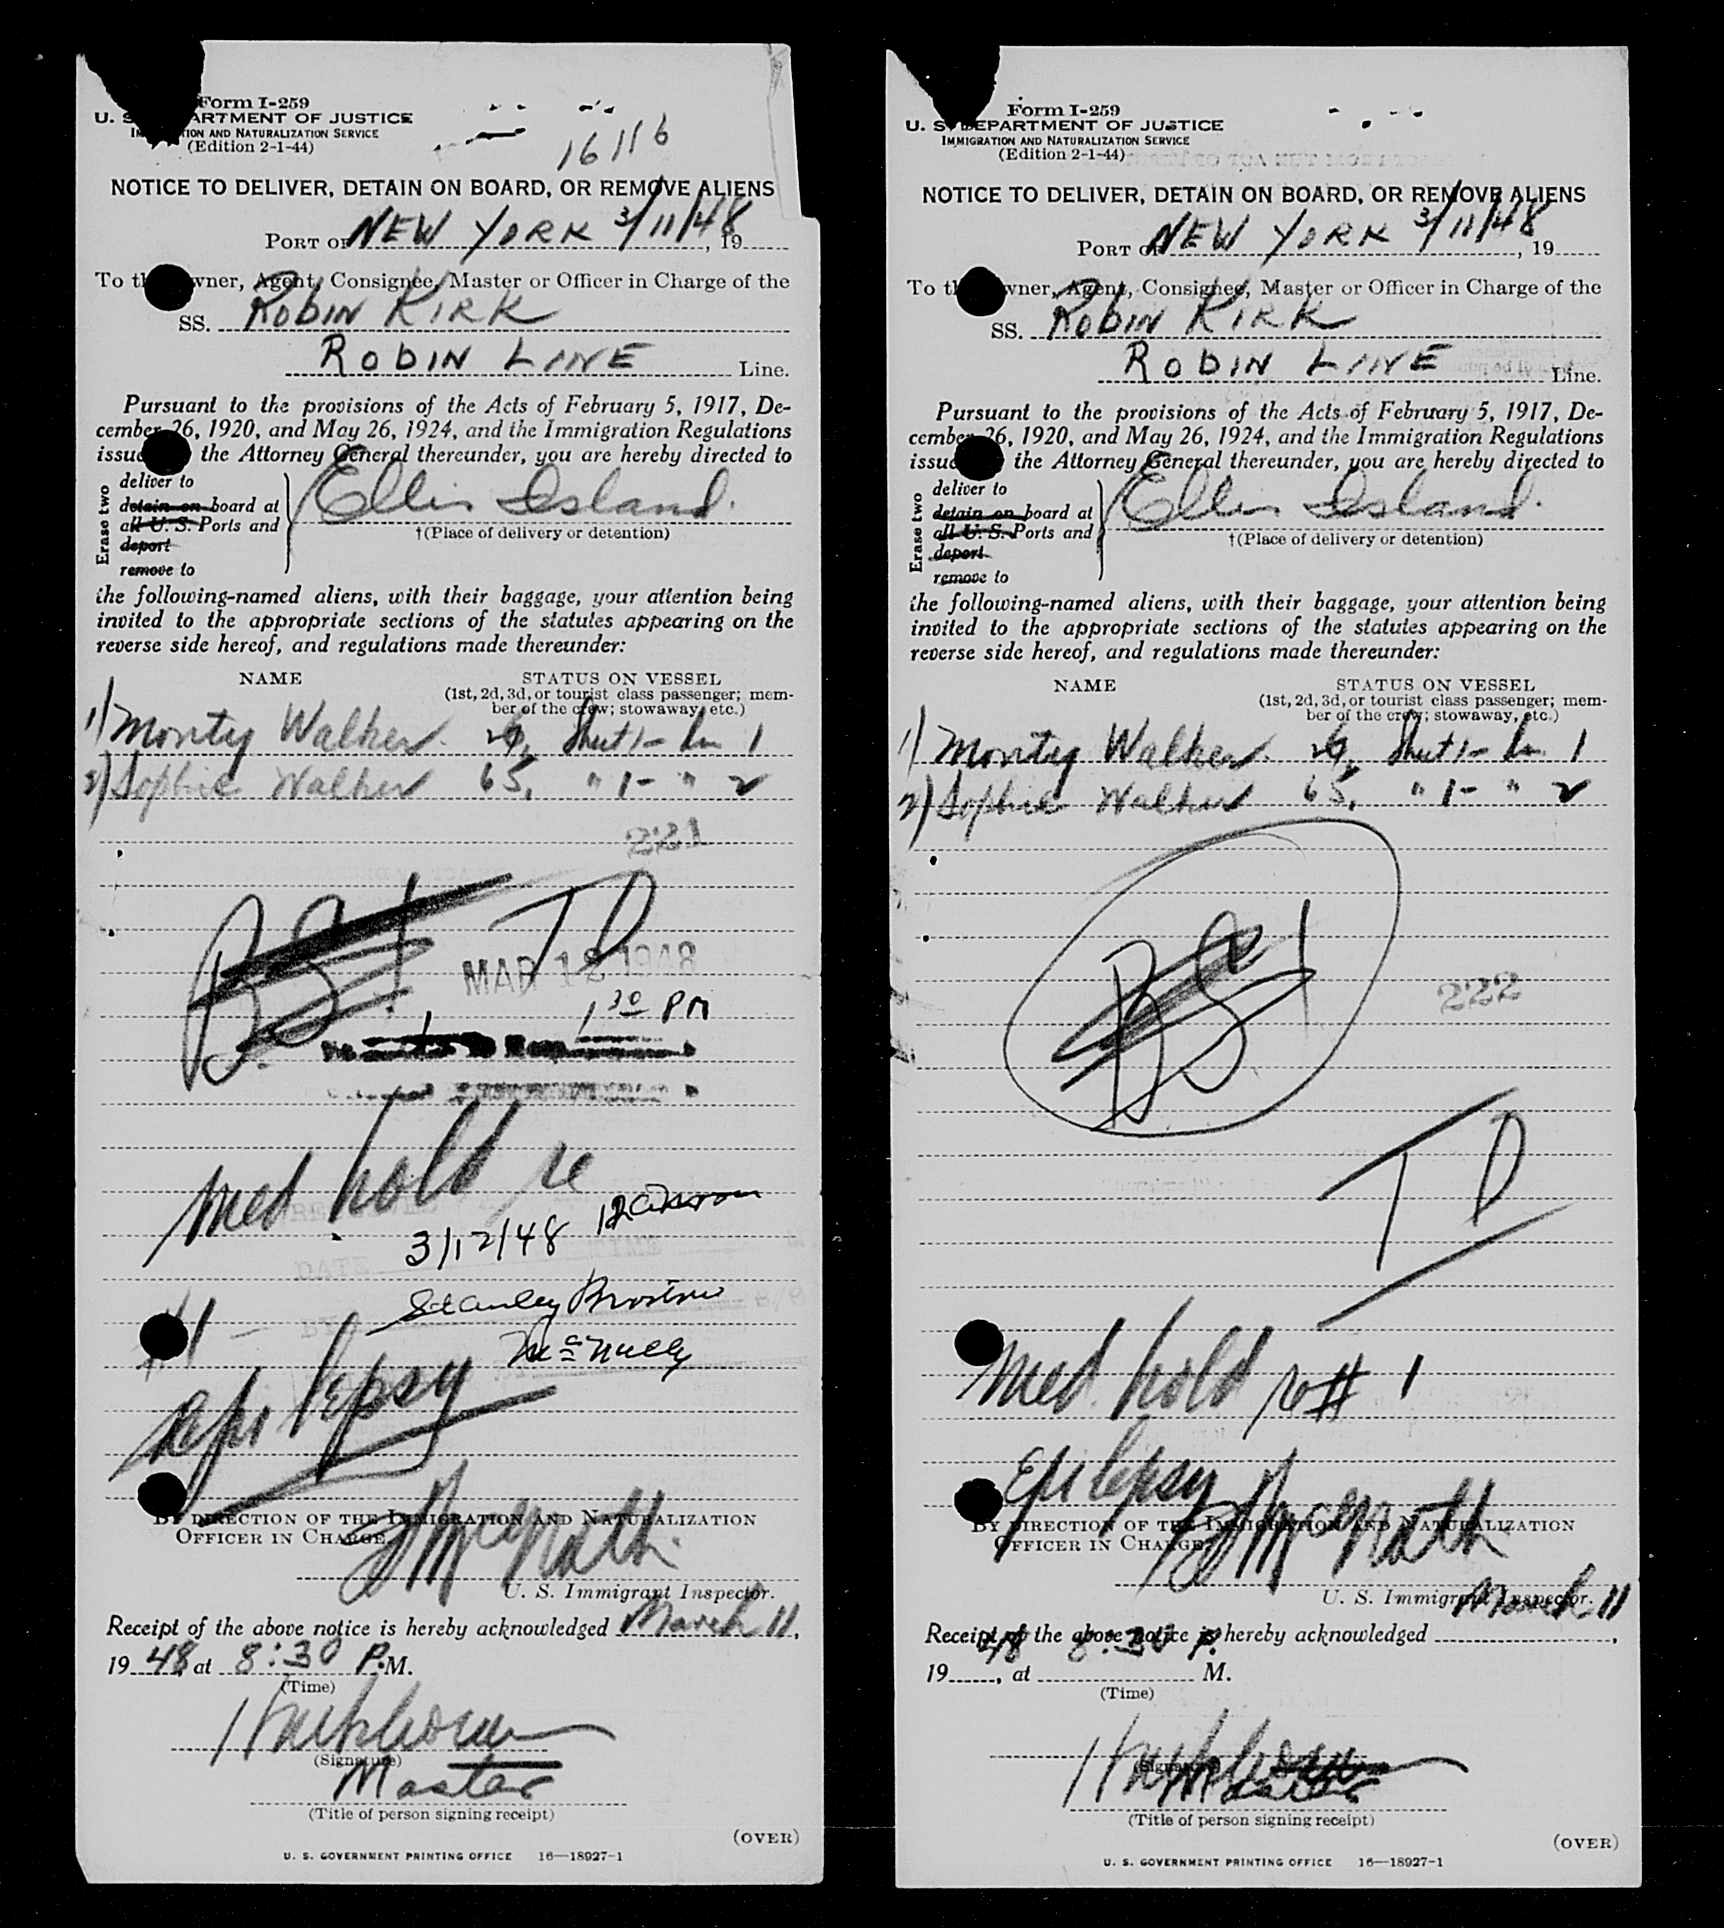 Form I-259
U. S. DEPARTMENT OF JUSTICE
IMMIGRATION AND NATURALIZATION SERVICE
(Edition 2-1-44)
16116
NOTICE TO DELIVER, DETAIN ON BOARD, OR REMOVE ALIENS
PORT OF NEW YORK 3/11/48, 19
To the Owner, Agent, Consignee, Master or Officer in Charge of the
SS. ROBIN KIRK
ROBIN LINE Line.
Pursuant to the provisions of the Acts of February 5, 1917, De-
cember 26, 1920, and May 26, 1924, and the Immigration Regulations
issued the Attorney General thereunder, you are hereby directed to
Erase two
deliver to
detain on board at
all U. S. Ports and
deport
remove to
Ellis Island.
†(Place of delivery or detention)
the following-named aliens, with their baggage, your attention being
invited to the appropriate sections of the statutes appearing on the
reverse side hereof, and regulations made thereunder:
NAME STATUS ON VESSEL
(1st, 2d, 3d, or tourist class passenger; mem-
ber of the crew; stowaway, etc.)
1) Monty Walker. 29, Sheet 1- Ln 1
2) Sophie Walker 65, " 1- " 2
221
BSI TD
MAR 12 1948
1 30 PM
Med. hold re
3/12/48
Stanley
McNully
#1 -
epilepsy
BY DIRECTION OF THE IMMIGRATION AND NATURALIZATION
OFFICER IN CHARGE
U. S. Immigrant Inspector.
Receipt of the above notice is hereby acknowledged March 11,
19 48, at 8:30 P. M.
(Time)
(Signature)
Master
(Title of person signing receipt)
(OVER)
U. S. GOVERNMENT PRINTING OFFICE 16—18927-1
Form I-259
U. S. DEPARTMENT OF JUSTICE
IMMIGRATION AND NATURALIZATION SERVICE
(Edition 2-1-44)
NOTICE TO DELIVER, DETAIN ON BOARD, OR REMOVE ALIENS
PORT OF NEW YORK 3/11/48, 19
To the Owner, Agent, Consignee, Master or Officer in Charge of the
SS. ROBIN KIRK
ROBIN LINE Line.
Pursuant to the provisions of the Acts of February 5, 1917, De-
cember 26, 1920, and May 26, 1924, and the Immigration Regulations
issued the Attorney General thereunder, you are hereby directed to
Erase two
deliver to
detain on board at
all U. S. Ports and
deport
remove to
Ellis Island.
†(Place of delivery or detention)
the following-named aliens, with their baggage, your attention being
invited to the appropriate sections of the statutes appearing on the
reverse side hereof, and regulations made thereunder:
NAME STATUS ON VESSEL
(1st, 2d, 3d, or tourist class passenger; mem-
ber of the crew; stowaway, etc.)
1) Monty Walker. 29, Sheet 1- Ln 1
2) Sophie Walker 65, " 1- " 2
BSI
222
TD
Med. hold re # 1
Epilepsy
BY DIRECTION OF THE IMMIGRATION AND NATURALIZATION
OFFICER IN CHARGE
U. S. Immigrant Inspector.
March 11
Receipt of the above notice is hereby acknowledged ,
48 8:30 P.
19 , at M.
(Time)
(Signature)
Master
(Title of person signing receipt)
(OVER)
U. S. GOVERNMENT PRINTING OFFICE 16—18927-1